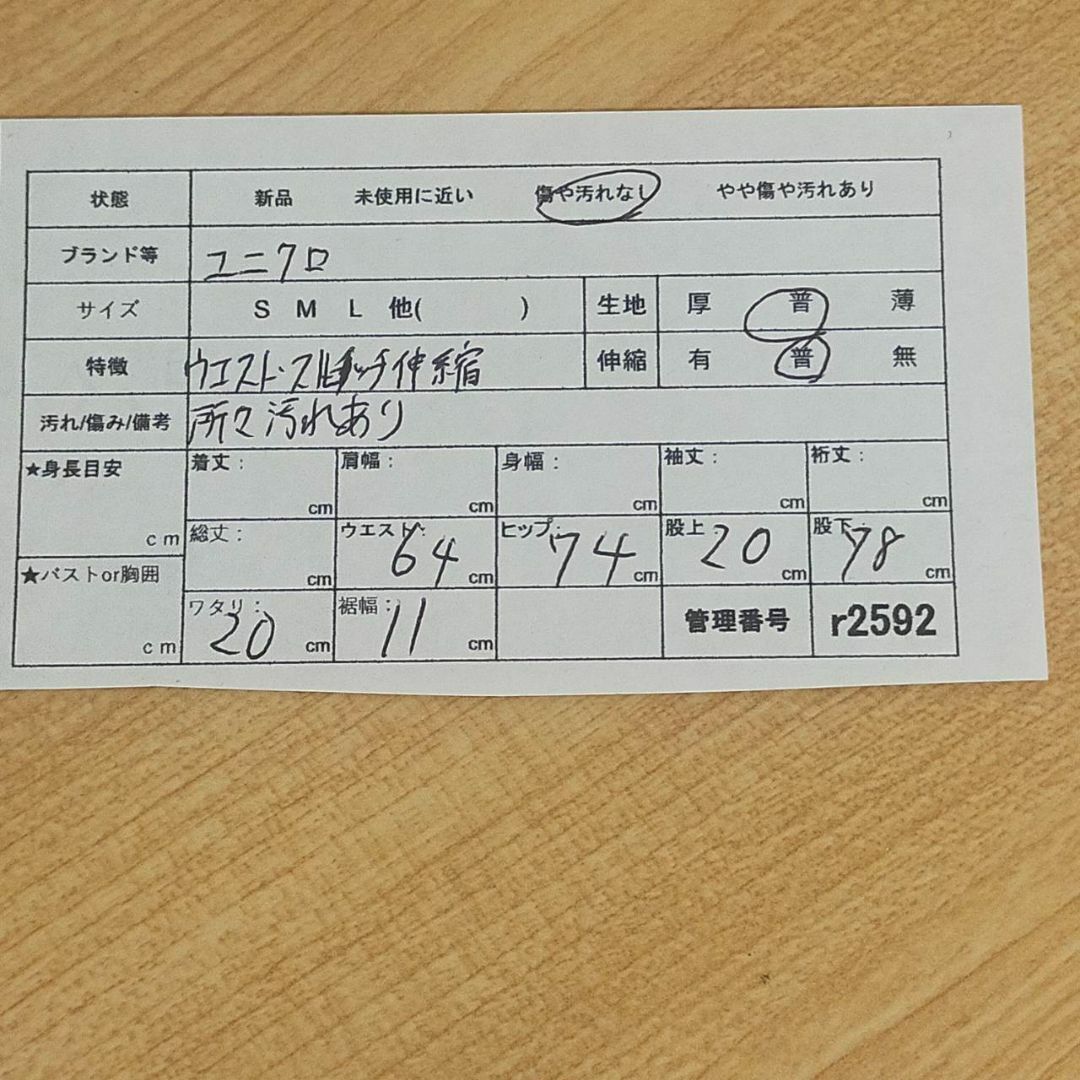 状態 新品 未使用に近い 傷や汚れなし やや傷や汚れあり
ブランド等 ユニクロ
サイズ S M L 他( ) 生地 厚 普 薄
特徴 ウエスト・ストレッチ伸縮 伸縮 有 普 無
汚れ/傷み/備考 所々汚れあり
★身長目安 cm
着丈: cm 肩幅: cm 身幅: cm 袖丈: cm 裄丈: cm
総丈: cm ウエスト: 64 cm ヒップ: 74 cm 股上 20 cm 股下 78 cm
★バストor胸囲 cm
ワタリ: 20 cm 裾幅: 11 cm 管理番号 r2592